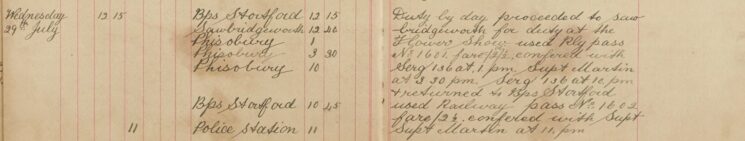 Wednesday 12 15 Bps Stortford 12 15 Duty by day proceeded to Saw
29th July Sawbridgeworth 12 40 bridgeworth for duty at the
Phisobury 1 Flower Show used Rly pass
Phisobury 3 30 No 1601. fare/2½. confered with
Phisobury 10 Serg 136 at 1 pm Supt Martin
at 3 30 pm. Serg 136 at 10 pm
& returned to Bps Stortford
Bps Stortford 10 45 used Railway pass No. 1602
fare/2½. confered with Supt
11 Police Station 11 Supt Martin at 11 pm